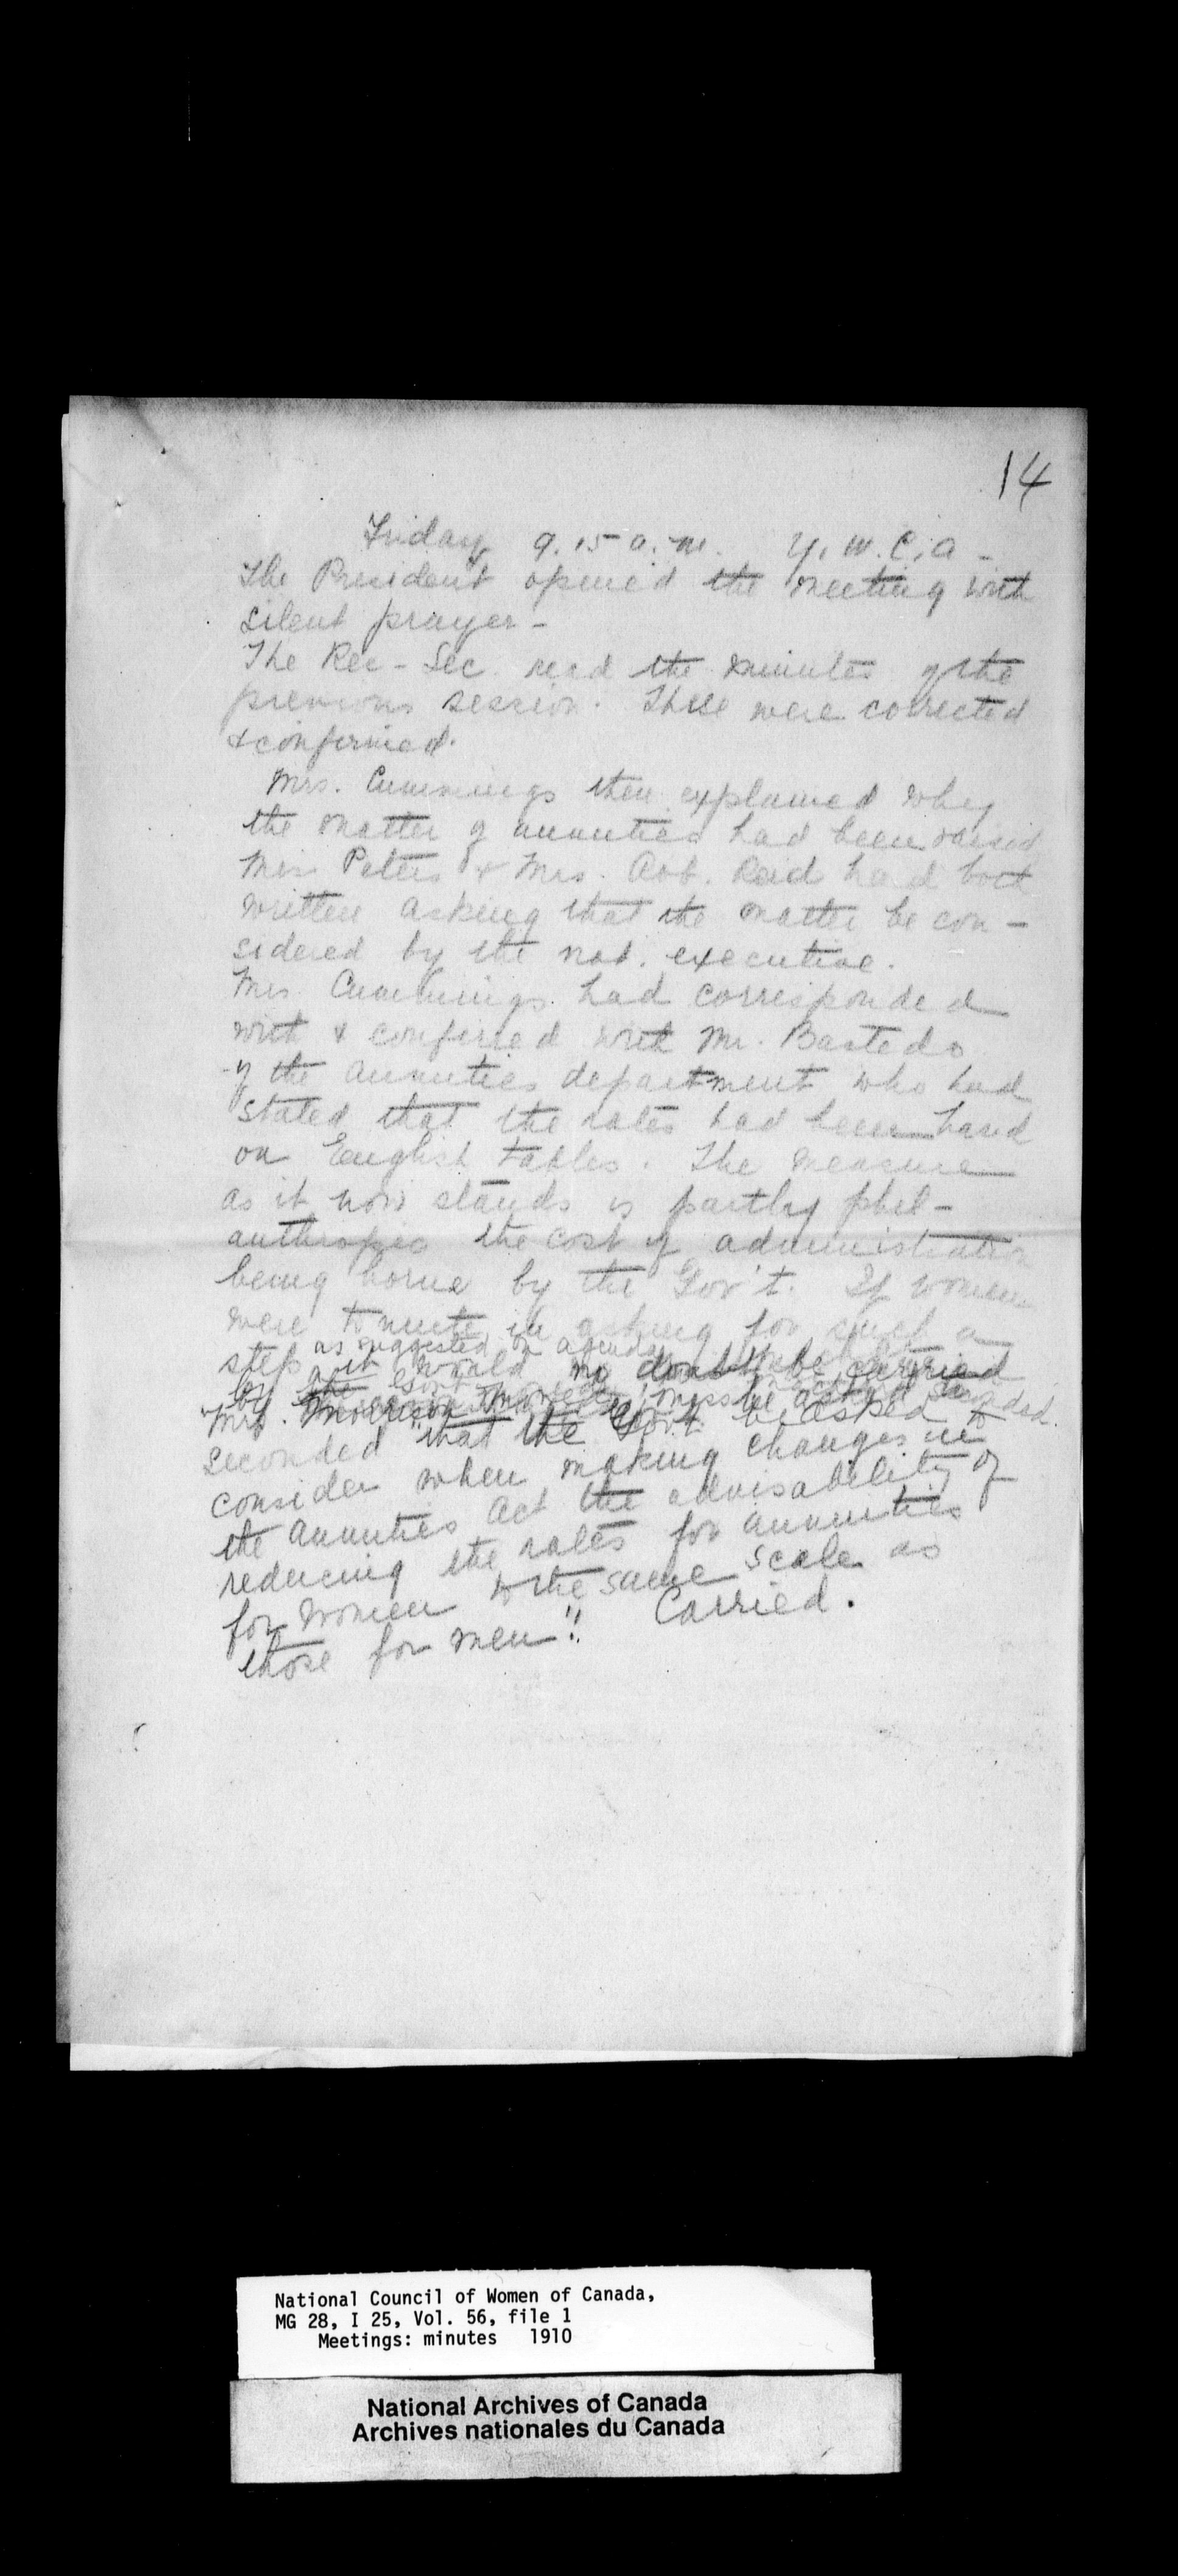 14
Friday 9.15 a.m. Y.W.C.A -
The President opened the meeting with
silent prayer -
The Rec - Sec. read the minutes of the
previous session. These were corrected
& confirmed.
Mrs. Cummings then explained why
the matter of annuities had been raised
Miss Peters & Mrs. Rob. Reid had both
written asking that the matter be con -
sidered by the nat. executive.
Mrs Cummings had corresponded
with & conferred with Mr. Bastedo
of the Annuities department who had
stated that the rates had been based
on English tables. The measure
as it now stands is partly phil -
anthropic the cost of administration
being borne by the Gov't. If women
were to unite in asking for such a
as suggested on agenda
step it would no doubt be carried
by the Gov't
Mrs. Morrison moved, Miss
seconded that the Gov't be asked to
consider when making changes in
the Annuities Act the advisability of
reducing the rates for annuities
for women to the same scale as
those for men". Carried.
National Council of Women of Canada,
MG 28, I 25, Vol. 56, file 1
Meetings: minutes 1910
National Archives of Canada
Archives nationales du Canada